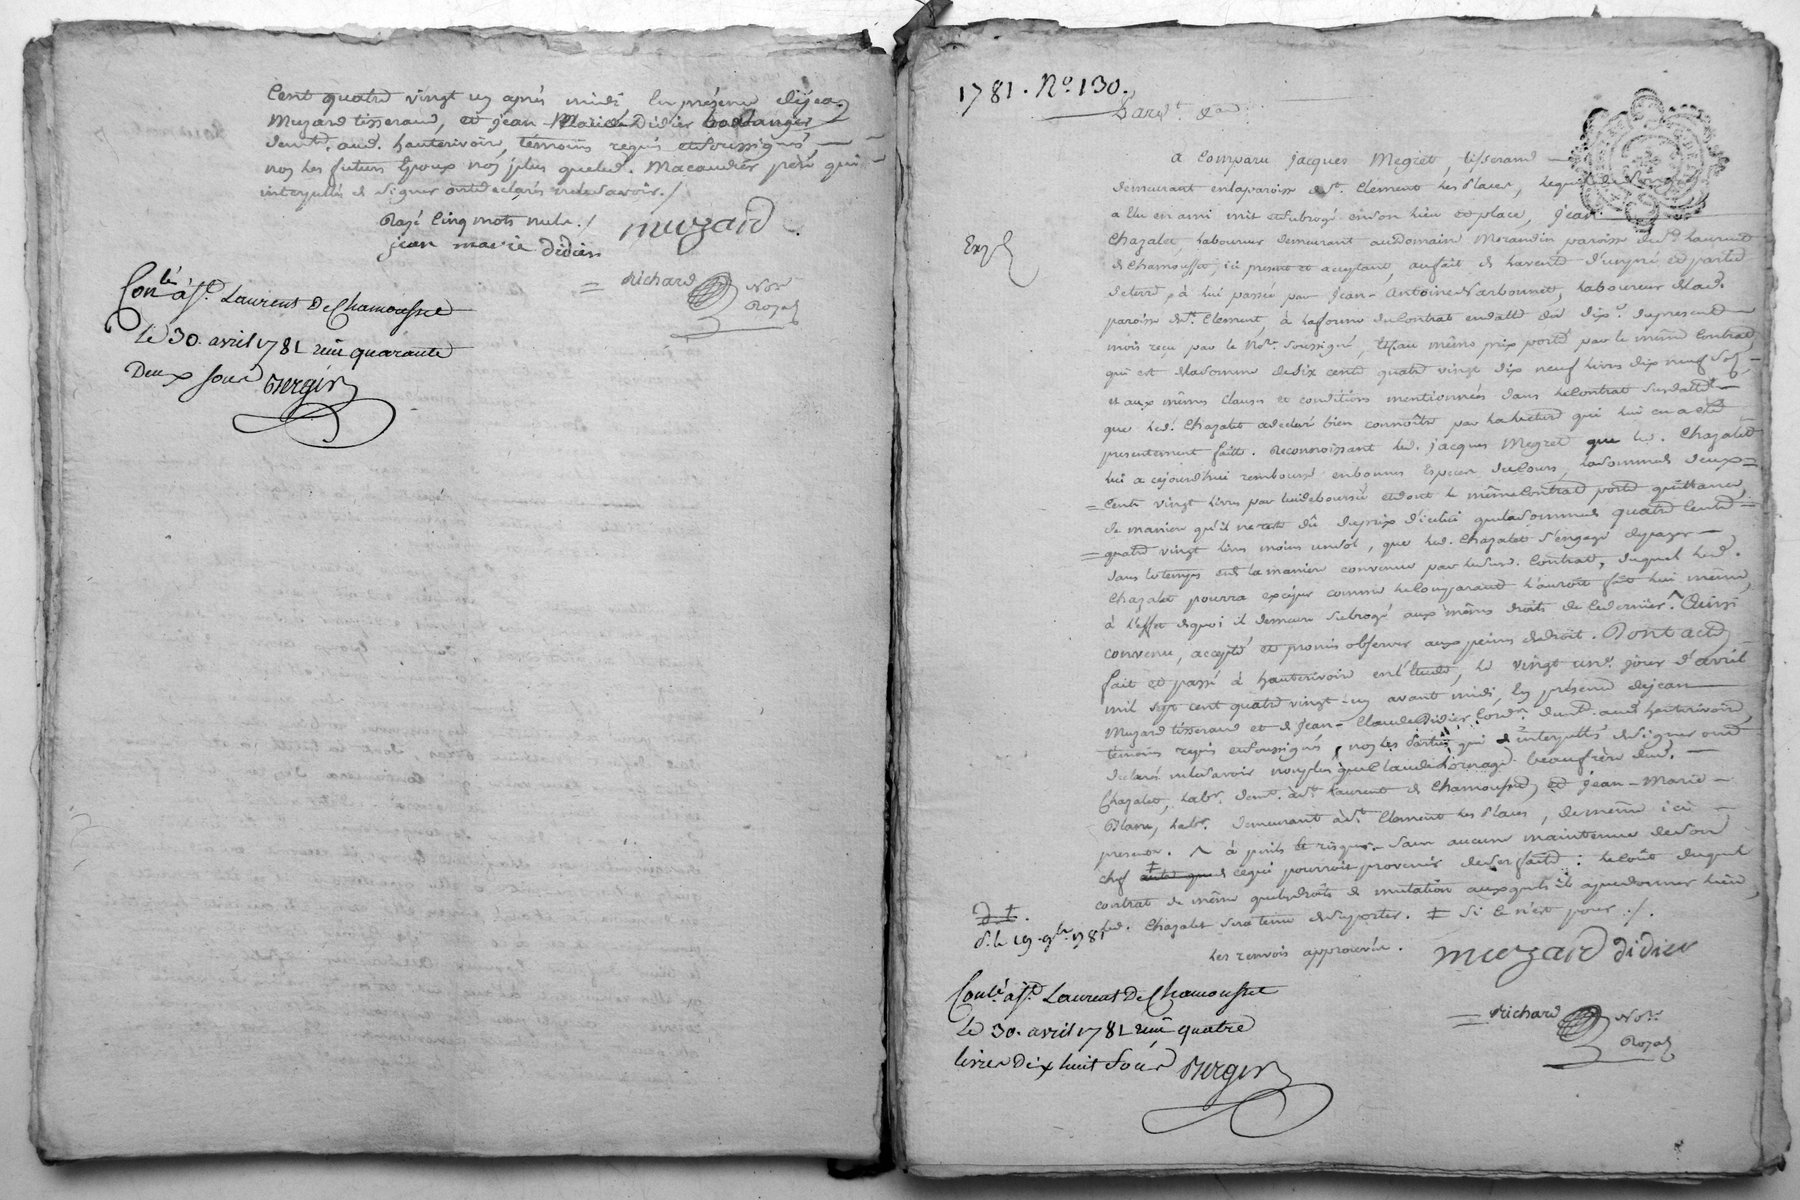 Cent quatre vingt un après midi, en présence de jean
Muzard tisserand, et jean Marie Didier boulanger
demt. aud. hauterivoire, témoins requis et soussignés,
non les futurs Epoux non plus que led. Macaudier père qui
interpellés de signer ont déclaré ne le savoir ./
Rayé Cinq mots nuls ./
muzard
jean marie didier
Richard Nore.
Royal
Conlé. à St. Laurent De Chamousset
Le 30. avril 1781 reçu quarante
Deux sous Bergin
1781. No. 130.
Pardt. &a.
a Comparu jacques Megret, tisserand
demeurant en la paroisse de St. Clement les Places, lequel de
a élu en ami mis et subrogé en son lieu et place, jean
Chazalet, laboureur demeurant au Domaine Morandin paroisse de St. Laurent
de Chamousset, ici present et acceptant, au fait de la vente d'un pré et partie
de terre, à lui passée par jean-Antoine Narbonnet, laboureur de lad.
paroisse de St. Clement, à la forme du Contrat en datte du dix. du present
mois reçu par le Nore. soussigné, et au même prix porté par le même Contrat
qui est de la somme de six cent quatre vingt dix neuf livres dix neuf sols,
et aux mêmes clauses et conditions mentionnées dans le Contrat susdatté
que led. Chazalet a declaré bien connoître par la lecture qui lui en a été
presentement faitte. Reconnoissant led. jacques Megret que led. Chazalet
lui a cejourd'hui remboursé en bonnes Especes de Cours, la somme de deux
Cents vingt livres par lui deboursée et dont le même Contrat porte quittance,
de maniere qu'il ne reste dû du prix d'icelui que la somme de quatre Cents
quatre vingt livres moins un sol, que led. Chazalet s'engage de payer
dans le temps et de la maniere convenue par le susd. Contrat, duquel led.
Chazalet pourra exciper comme le Comparant l'auroit fait lui même,
à l'effet de quoi il demeure subrogé aux mêmes droits de ce dernier. ^ Ainsi
convenu, accepté et promis observer aux peines de droit. Dont acte
fait et passé à hauterivoire en l'Etude, le vingt un. jour d'avril
mil sept cent quatre vingt-un avant midi, en présence de jean
Muzard tisserand et de jean-Claude Didier Cordr. demt. aud. hauterivoire,
témoins requis et soussignés, non les Parties qui de interpellées de signer ont
declaré ne le savoir non plus que Claude beaufrère dud.
Chazalet, labr. demt. à St. Laurent de Chamousset, et jean-Marie
Blanc, labr. demeurant à St. Clement les Places, de même ici
presents. ^ à perils et risques, sans aucune maintenue de son
chef autre que de ce qui pourroit provenir de ses faits: le coût duquel
contrat de même que les droits de mutation auxquels il a pu donner lieu,
led. Chazalet sera tenu de supporter. ‡ Si ce n'est pour ./.
Les renvois approuvés.
muzard didier
Richard Nore.
Royal
Exp
d. le 19. 9bre. 1781
Conlé. à St. Laurent De Chamousset
Le 30. avril 1781 reçu quatre
livres Dix huit Sous Bergin